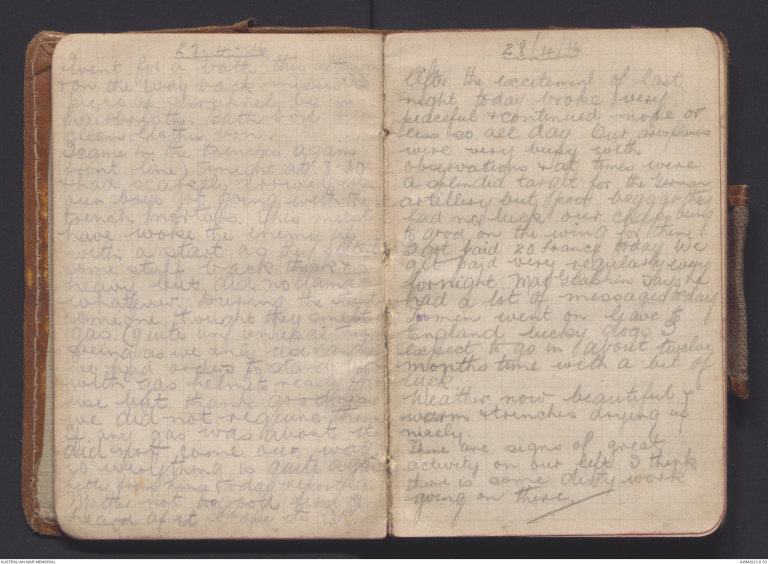 27.4.16
I went for a bath this
& on the way back missed a
piece of shrapnel by
hairbreaths. Bath bon
clean clothes bon.
I came in the trenches again
front line) tonight at 8.30
& had scarcely arrived when
our boys got going with the
trench mortars this must
have woke the enemy up
with a start as they
some stuff back thick &
heavy but did no damage
whatever. During the
someone thought they smelt
gas. (quite an unusual thing
seeing as we only use candles
we had orders to stand to
with gas helmets ready for
use but thank goodness
we did not require them
If any gas was about it
did not come our way
so everything is quite
letter from today
Matter not too good first I
heard of it hope
28/4/16
After the excitement of last
night today broke very
peaceful & continued more or
less so all day Our aeroplanes
were very busy with
observations & at times were
a splendid target for the German
artillery but poor beggars they
had no luck our chaps being
to good on the wing for them.
I got paid 20 Francs today We
get paid very regularly every
fornight. Mac says he
had a lot of messages today
men went on leave to
England lucky dogs I
expect to go in (about twelve
months time with a bit of
luck
Weather now beautiful &
warm & trenches drying up
nicely.
There are signs of great
activity on our left I think
there is some dirty work
going on there.
AUSTRALIAN WAR MEMORIAL